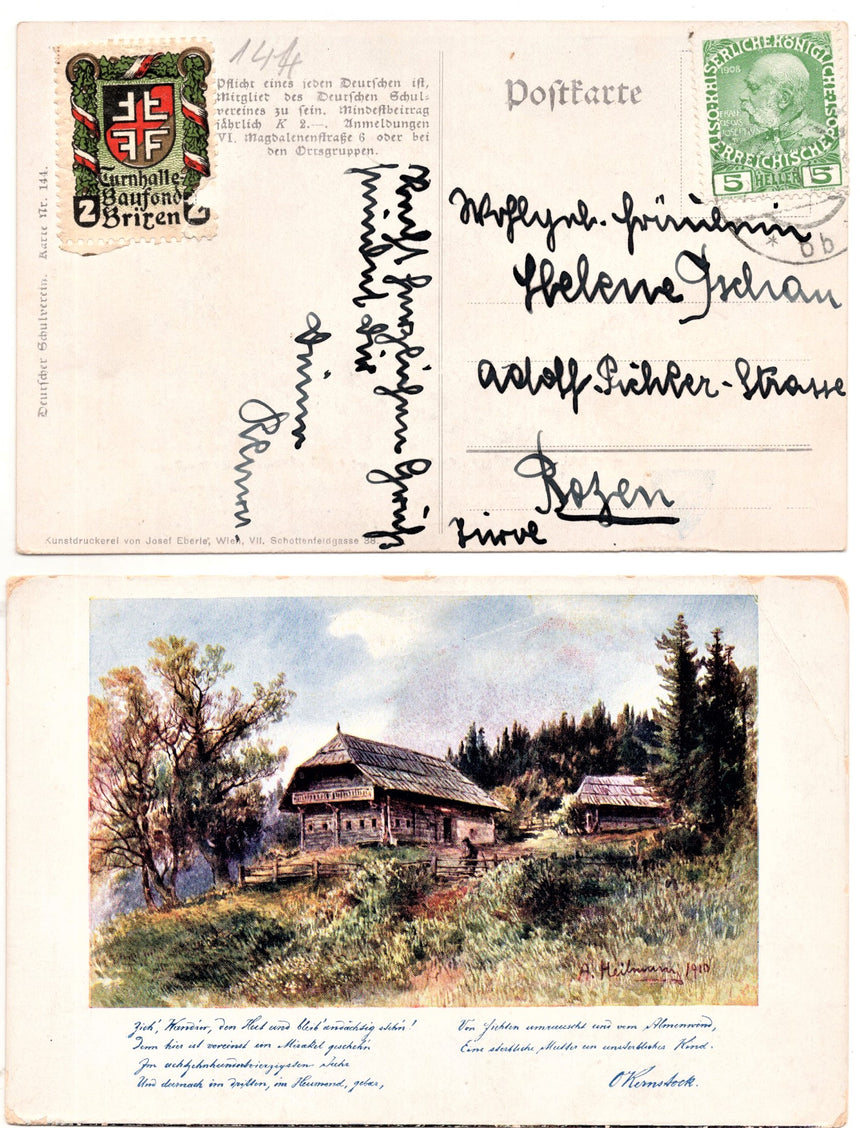 144
Pflicht eines jeden Deutschen ist,
Mitglied des Deutschen Schul-
vereines zu sein. Mindestbeitrag
jährlich K 2.—. Anmeldungen
VI. Magdalenenstraße 6 oder bei
den Ortsgruppen.
Turnhalle-
Baufond
Brixen
2 2
FF
FF
Deutscher Schulverein. Karte Nr. 144.
Postkarte
KAISERLICHE KÖNIGLICHE ÖSTERREICHISCHE
1908
5 HELLER 5
* 6b
Wohlgeb. Fräulein
Helene Tschan
Adolf Pichler-Strasse
Bozen
Recht herzlichen Gruß
Kunstdruckerei von Josef Eberle, Wien, VII. Schottenfeldgasse 38.
A. Heilmann 1910
Zieh', Wand'rer, den Hut und bleib' andächtig steh'n!
Denn hier ist vereinst ein Mirakel gescheh'n
Im achtzehnhundertvierzigsten Jahr
Und darnach im dritten, im Heumond, gebar,
Von Fichten umrauscht und vom Almenwind,
Eine sterbliche Mutter ein unsterbliches Kind.
O Kernstock.